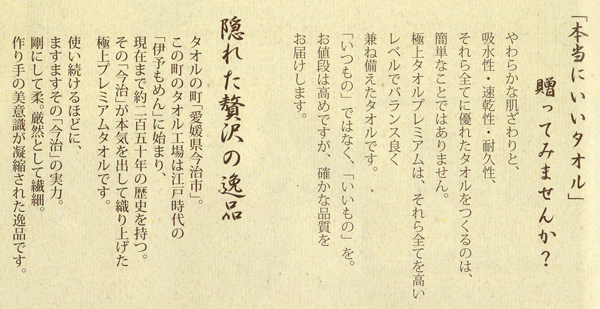 「本当にいいタオル」
贈ってみませんか？
やわらかな肌ざわりと、
吸水性・速乾性・耐久性、
それら全てに優れたタオルをつくるのは、
簡単なことではありません。
極上タオルプレミアムは、それら全てを高い
レベルでバランス良く
兼ね備えたタオルです。
「いつもの」ではなく、「いいもの」を。
お値段は高めですが、確かな品質を
お届けします。
隠れた贅沢の逸品
タオルの町「愛媛県今治市」。
この町のタオル工場は江戸時代の
「伊予もめん」に始まり、
現在まで約二百五十年の歴史を持つ。
その「今治」が本気を出して織り上げた
極上プレミアムタオルです。
使い続けるほどに、
ますますその「今治」の実力。
剛にして柔。厳然として繊細。
作り手の美意識が凝縮された逸品です。